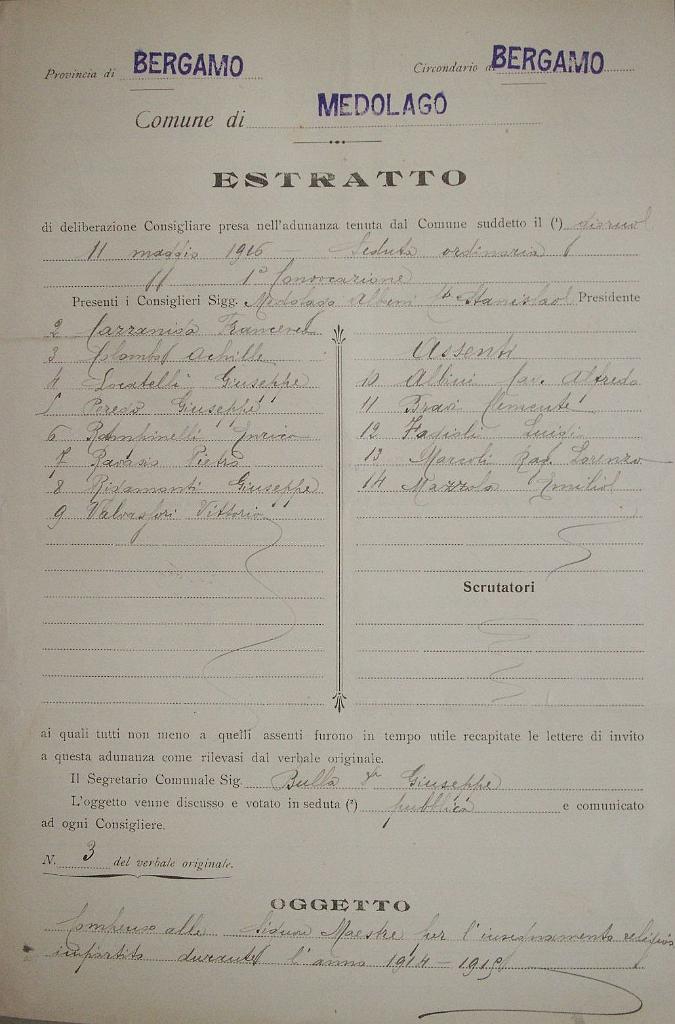 Provincia di BERGAMO Circondario di BERGAMO
Comune di MEDOLAGO
ESTRATTO
di deliberazione Consigliare presa nell'adunanza tenuta dal Comune suddetto il (¹) giorno
11 maggio 1916 — Seduta ordinaria
1ª Convocazione
Presenti i Consiglieri Sigg. Medolago Albani Stanislao Presidente
2 Cazzaniga Francesco
3 Colombo Achille
4 Locatelli Giuseppe
5 Perego Giuseppe
6 Rambinelli Enrico
7 Ravasio Pietro
8 Rivamonti Giuseppe
9 Valvassori Vittorio
Assenti
10 Albini Cav. Alfredo
11 Bravi Clemente
12 Fagioli Luigi
13 Marcoli Rag. Lorenzo
14 Mazzola Emilio
Scrutatori
ai quali tutti non meno a quelli assenti furono in tempo utile recapitate le lettere di invito
a questa adunanza come rilevasi dal verbale originale.
Il Segretario Comunale Sig. Bulla Giuseppe
L'oggetto venne discusso e votato in seduta (²) pubblica e comunicato
ad ogni Consigliere.
N. 3 del verbale originale.
OGGETTO
Compenso alle Signore Maestre per l'insegnamento religioso
impartito durante l'anno 1914 – 1915